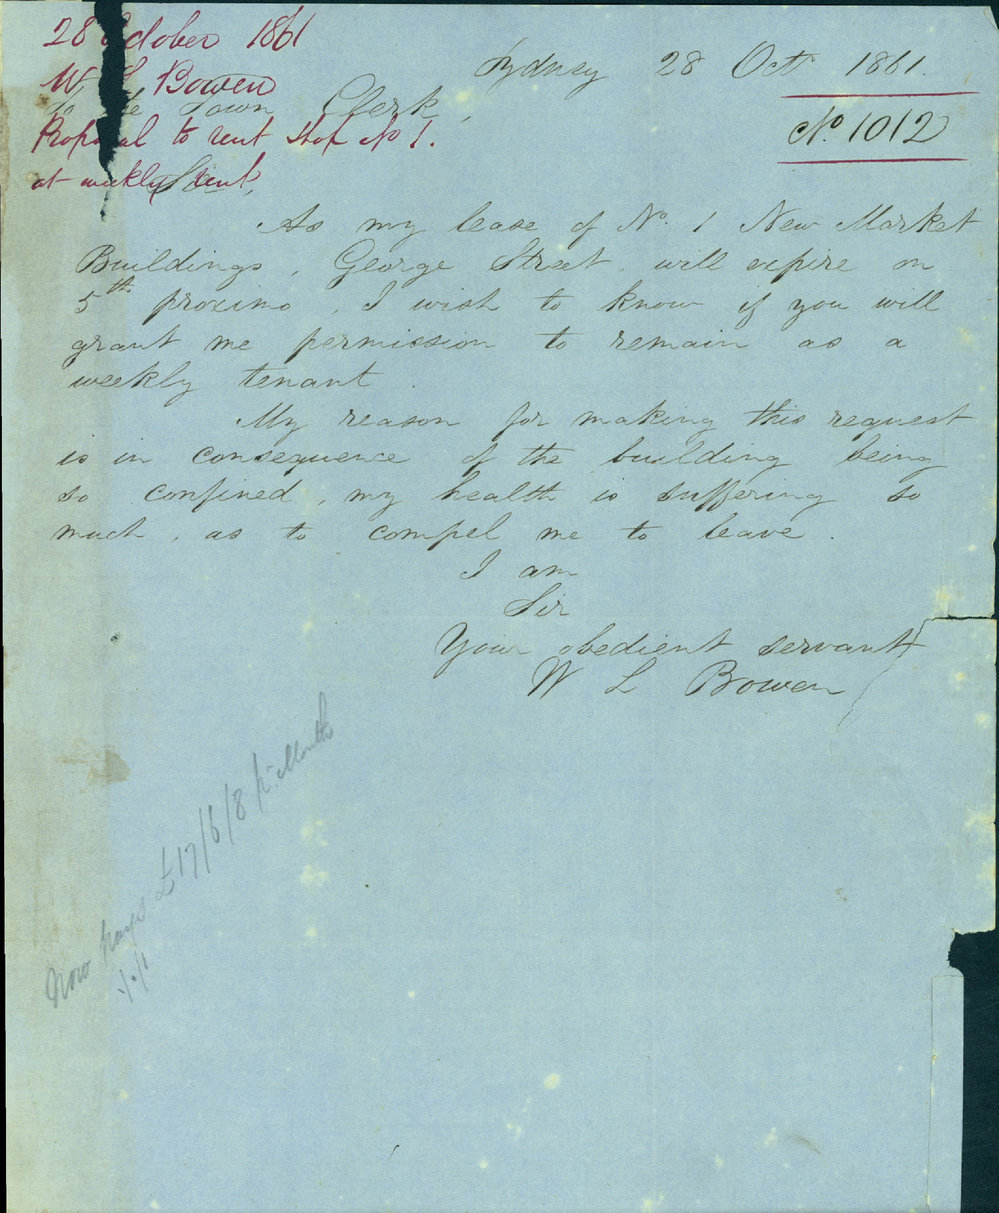 28 October 1861
W L Bowen
Proposal to rent shop No 1.
at weekly rent,
Sydney 28 Octr 1861.
No. 1012
To the Town Clerk,
Sir,
As my lease of No. 1 New Market
Buildings, George Street, will expire on
5th proximo, I wish to know if you will
grant me permission to remain as a
weekly tenant.
My reason for making this request
is in consequence of the building being
so confined, my health is suffering so
much, as to compel me to leave.
I am
Sir
Your obedient servant
W L Bowen
Now pays £17/6/8 pr. Month